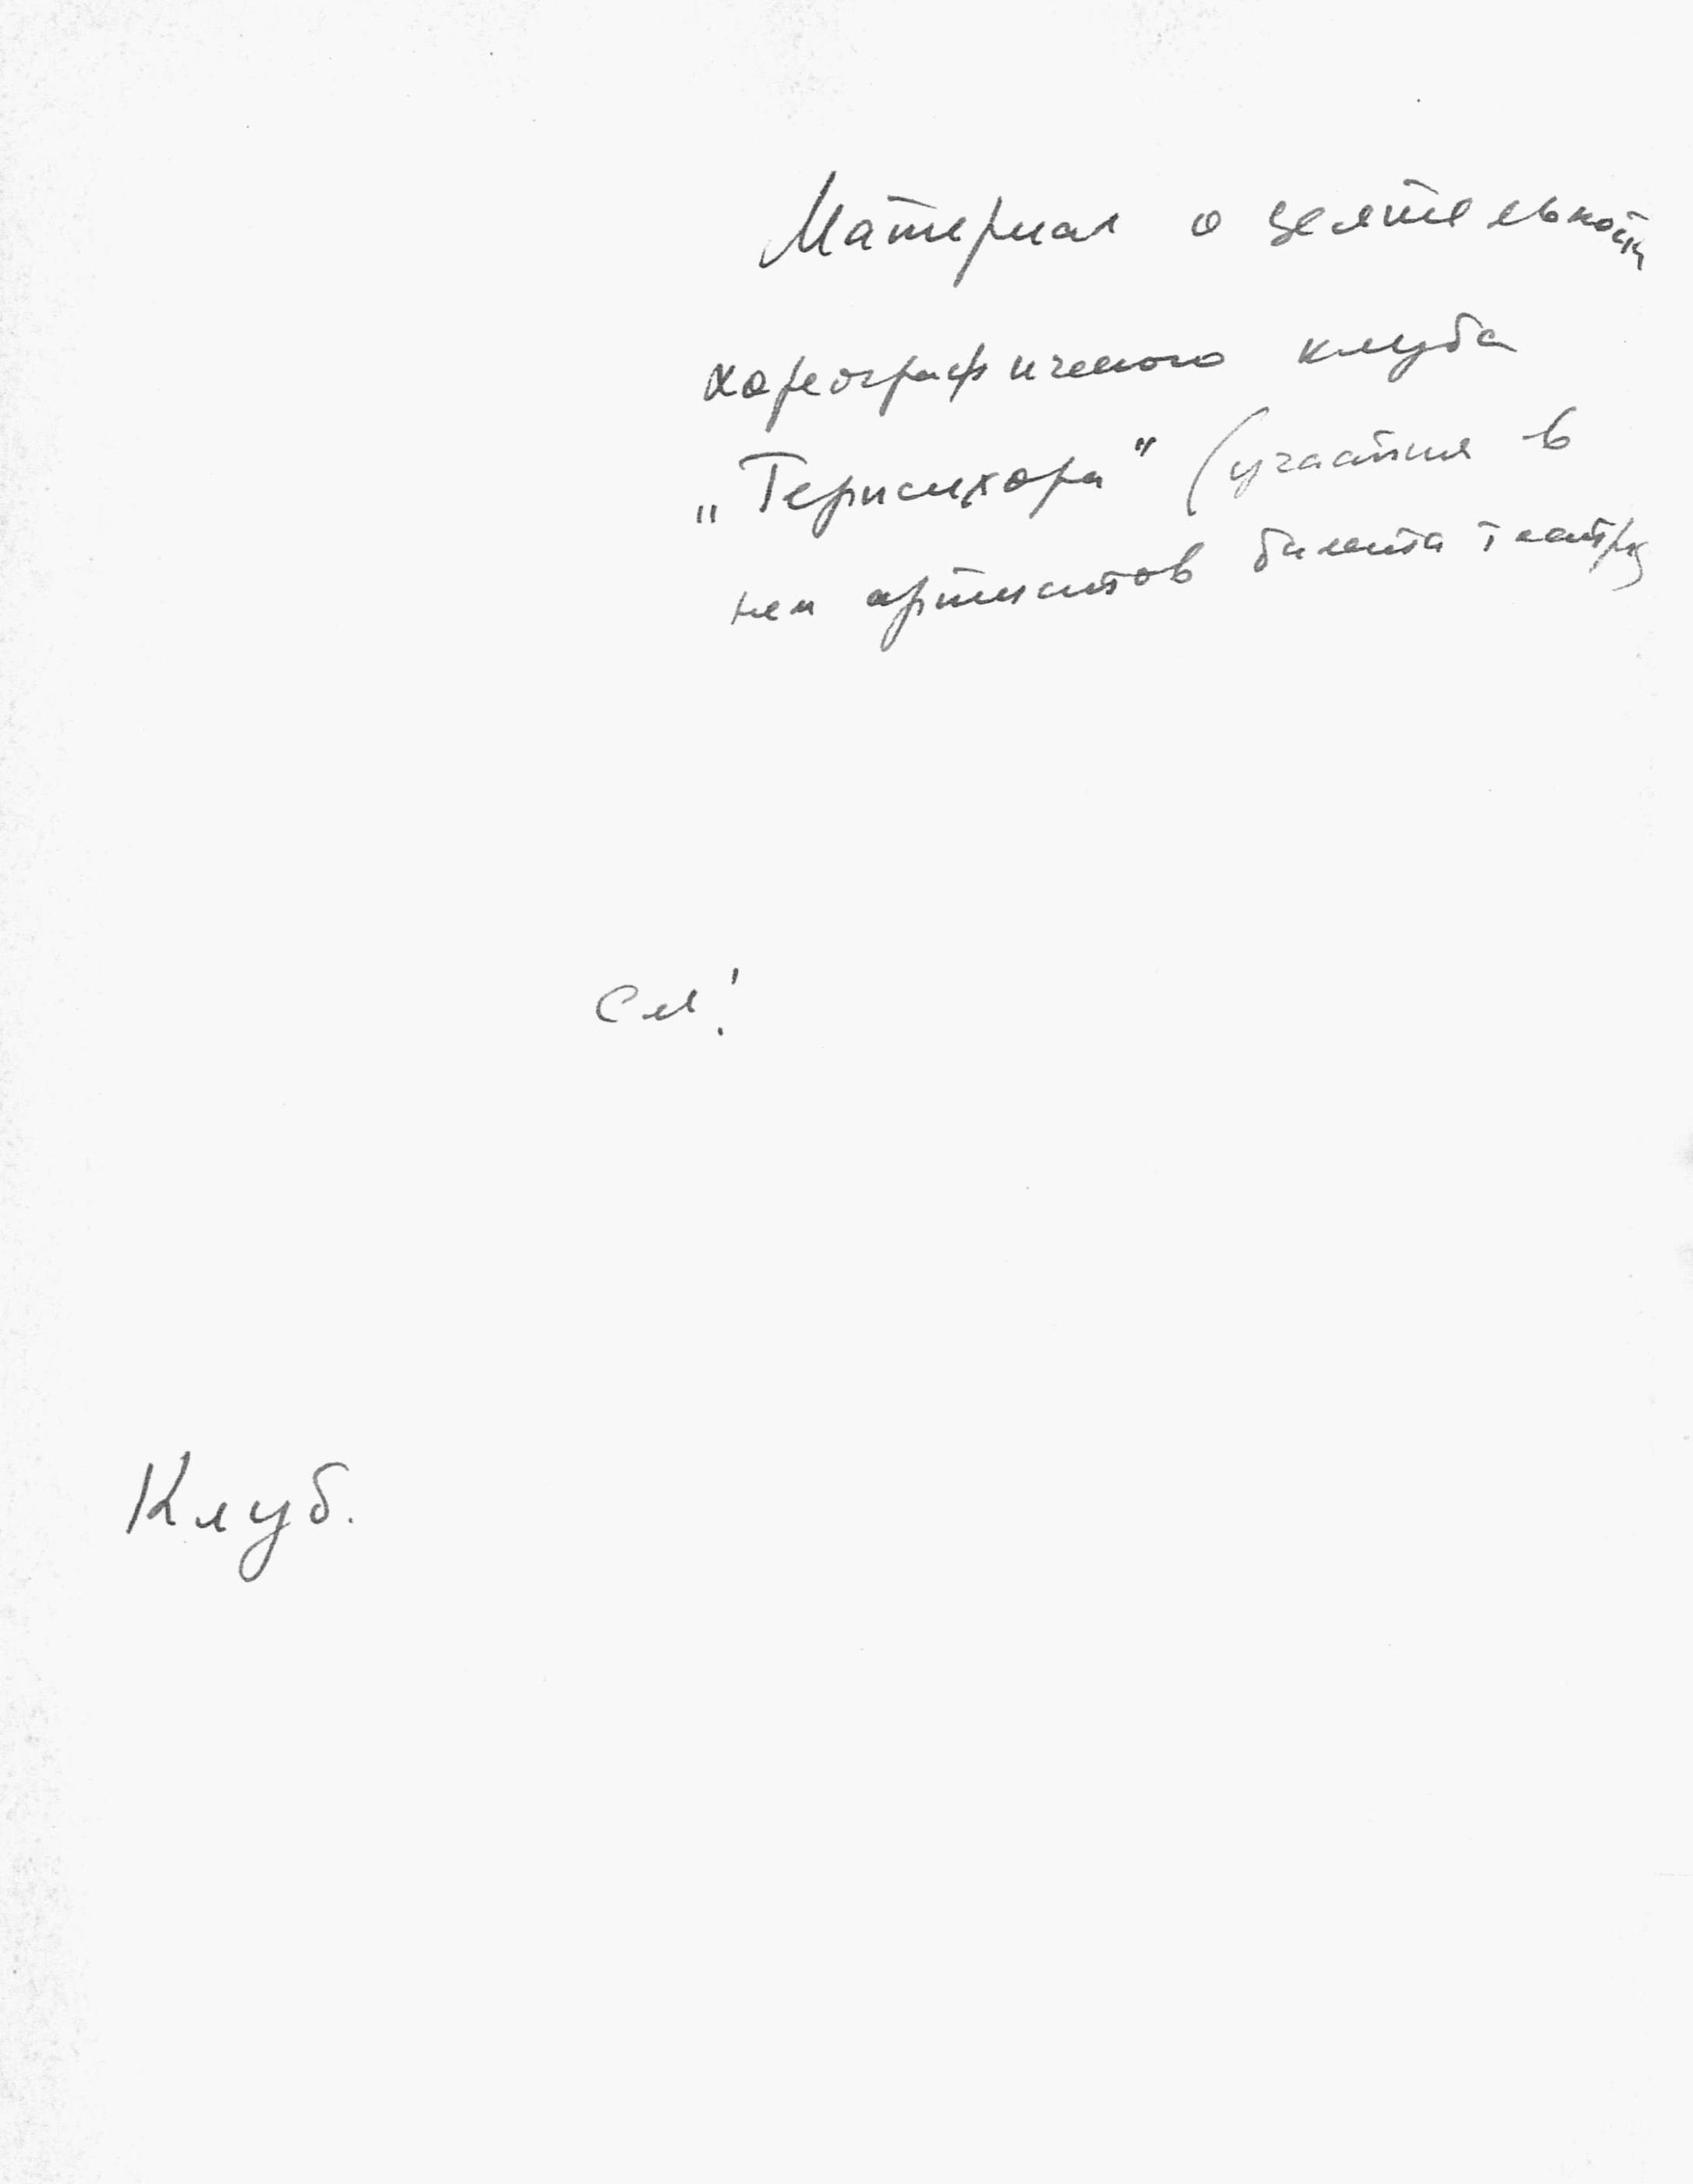 Материал о деятельности
хореографического клуба
„Терпсихора" (участия в
нем артистов балета театра
См!
Клуб.